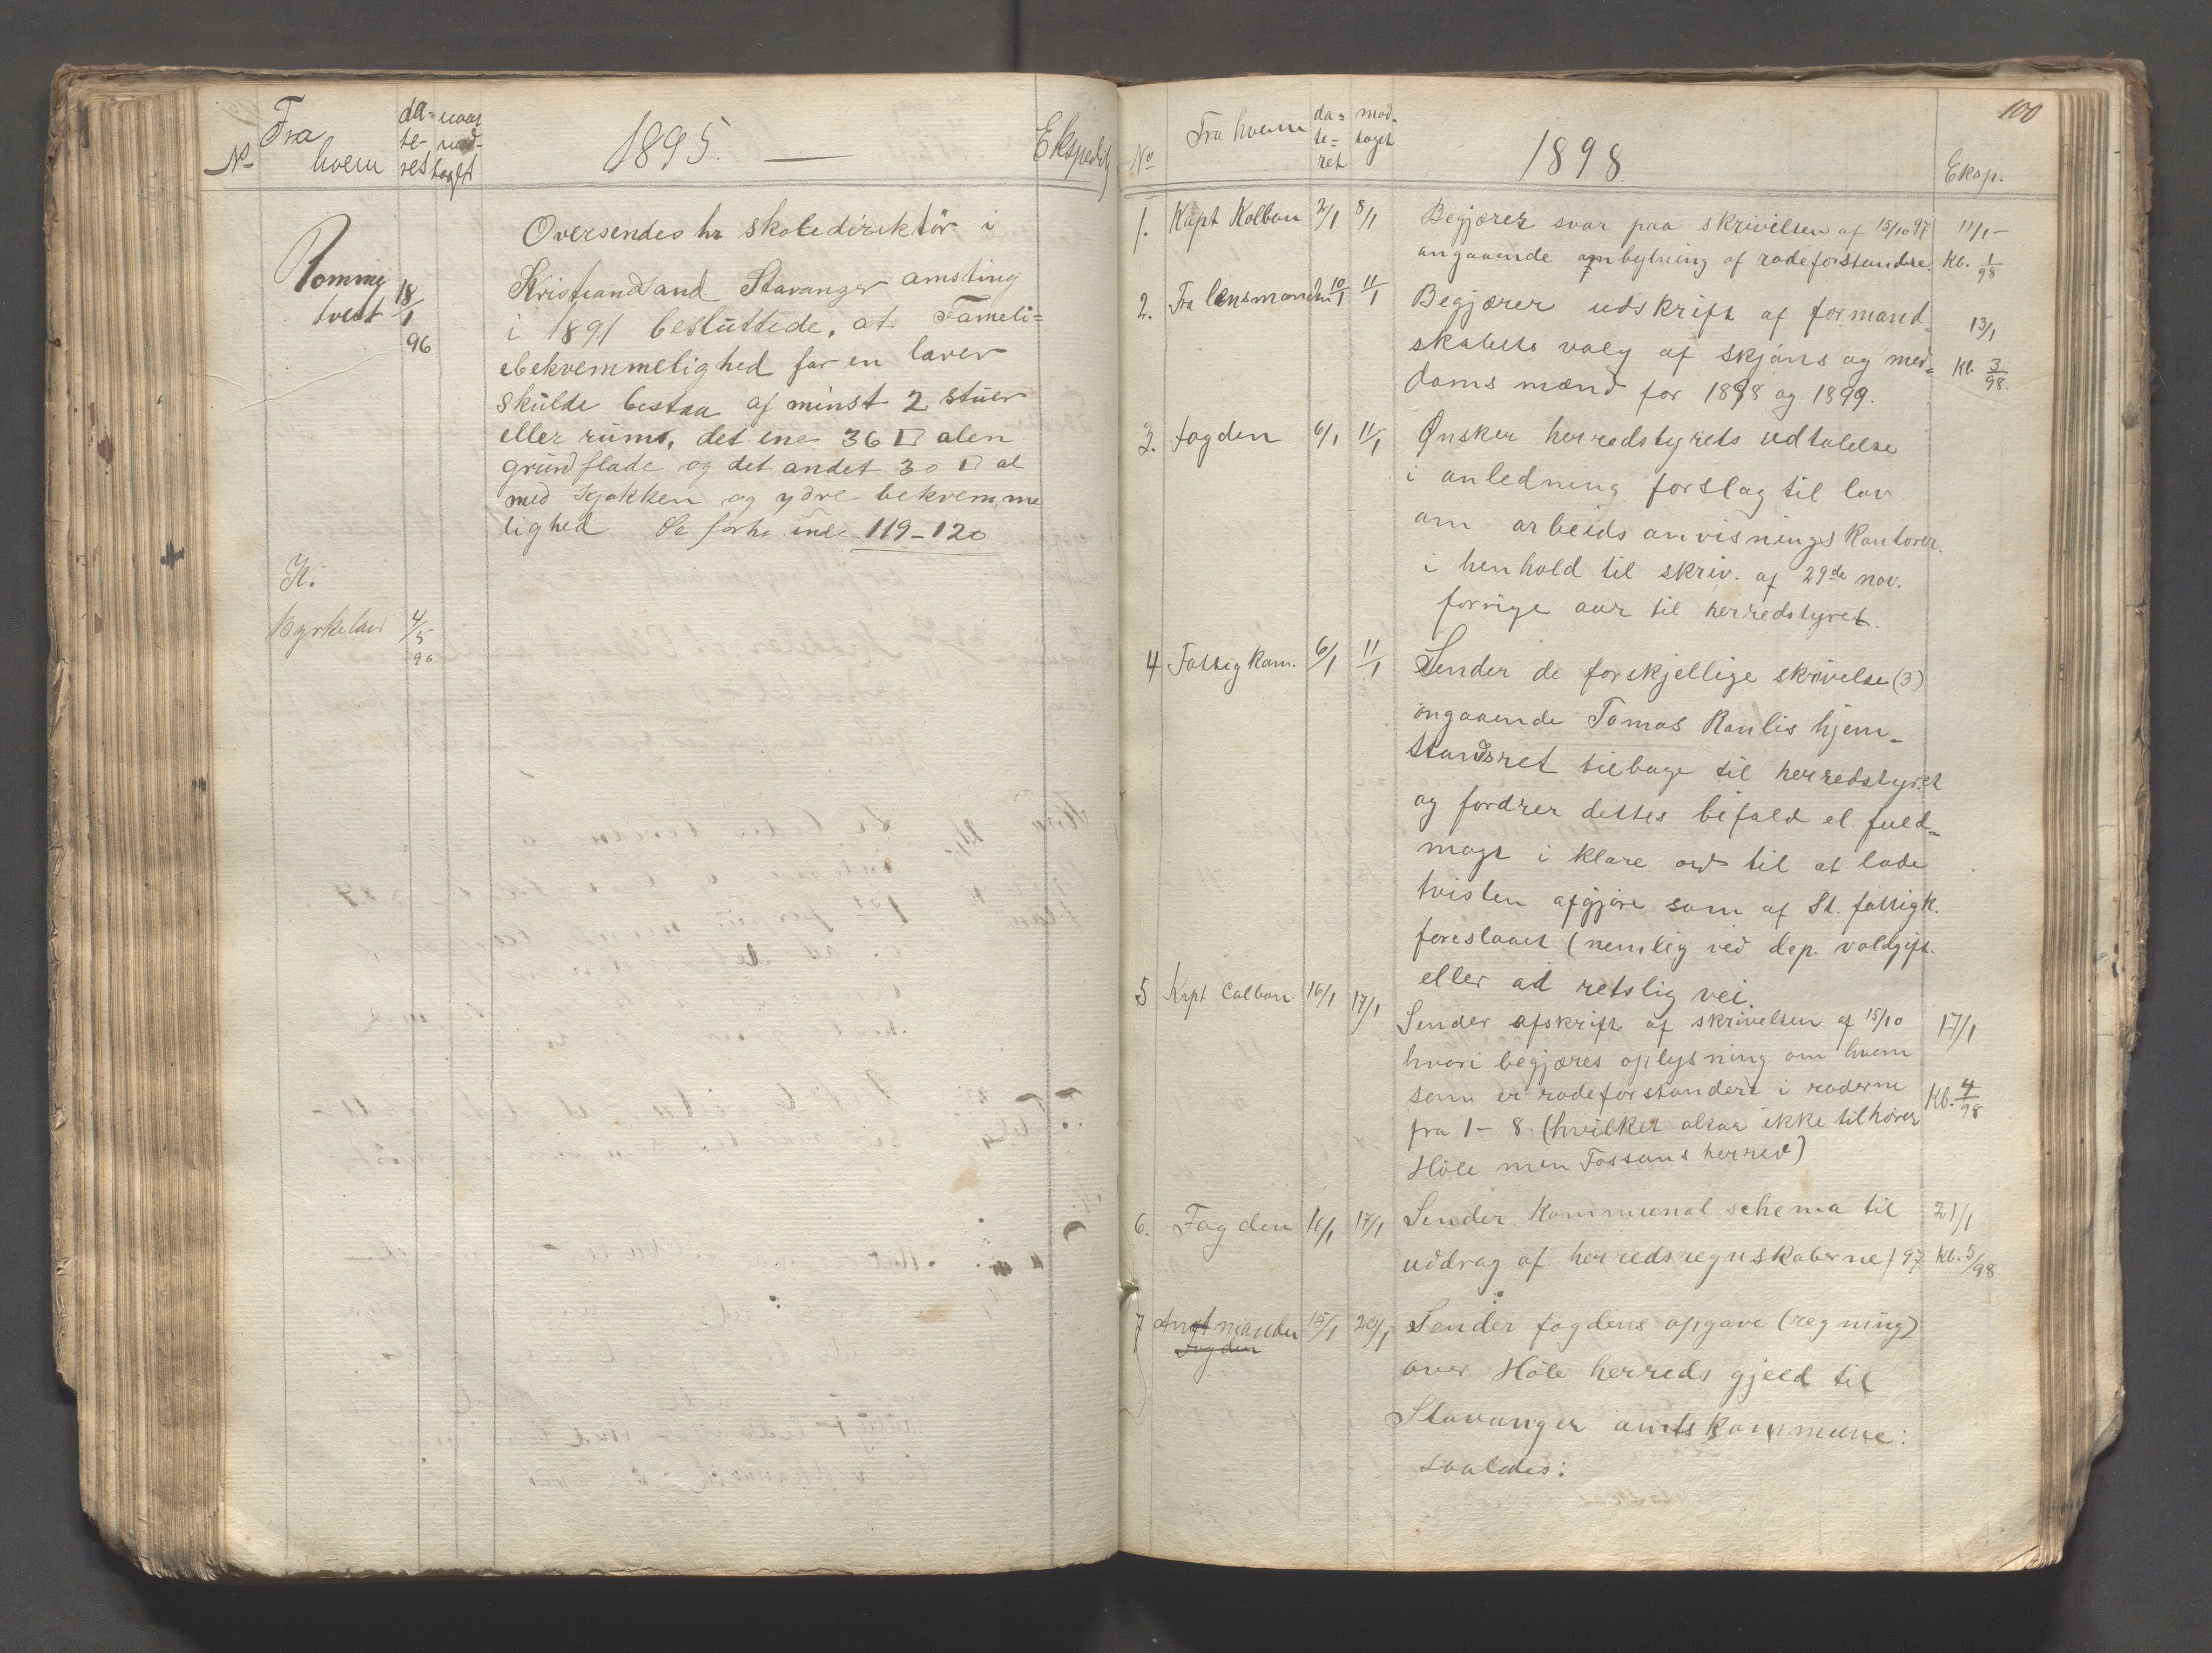 No
Fra hvem
da-te-ret
naar mod-taget
1895. —
Ekspedit
Tommy
tvedt
18/1
96
Oversendes hr skoledirektör i
Kristiandsand Stavanger amsting
i 1891 besluttede, at Fameli=
ebekvemmelighed for en lærer
skulde bestaa af minst 2 stuer
eller rums, det ene 36 □ alen
grundflade og det andet 30 □ al
med Kjøkken og ydre bekvemme
lighed Se forh. 119–120
K.
Kyrkeland
4/5
96
100
No
Fra hvem
da=te=ret
mod-taget
1898.
Eksp.
1. Kapt Kolban 2/1 8/1 Begjærer svar paa skrivelsen af 15/10 97 11/1 –
angaaende ombytning af rodeforstandere. Kb. 1/98
2. Fra lensmanden 10/1 11/1 Begjærer udskrift af formand- 13/1
skabets valg af skjöns og med= Kb. 3/98.
doms mænd for 1898 og 1899.
3. fogden 6/1 11/1 Ønsker herredstyrets udtalelse
i anledning forslag til lov
om arbeids anvisnings Kontorer.
i henhold til skriv. af 29de nov.
forrige aar til herredstyret.
4 Fattigkom. 6/1 11/1 Sender de forskjellige skrivelse (3)
angaaende Tomas Ranlis hjem-
standsret tilbage til herredstyret
og fordrer dettes bifald el. fuld-
magt i klare ord til at lade
tvisten afgjøre som af St. fattigk.
foreslaaet (nemlig ved dep. voldgift.
eller ad retslig vei.
5 Kapt Colban 16/1 17/1 Sender afskrift af skrivelsen af 15/10 17/1
hvori begjæres oplysning om hvem
som er rodeforstandere i roderne Kb. 4/98
fra 1 – 8. (hvilket altsaa ikke tilhører
Höle men Fossans herred)
6. Fogden 16/1 17/1 Sender Kommunal schema til 21/1
uddrag af herredsregnskaberne f 97 Kb. 5/98
7 Amtmanden 15/1 20/1 Sender fogdens opgave (regning)
Fogden
over Höle herreds gjeld til
Stavanger amtskommune:
saaledes: